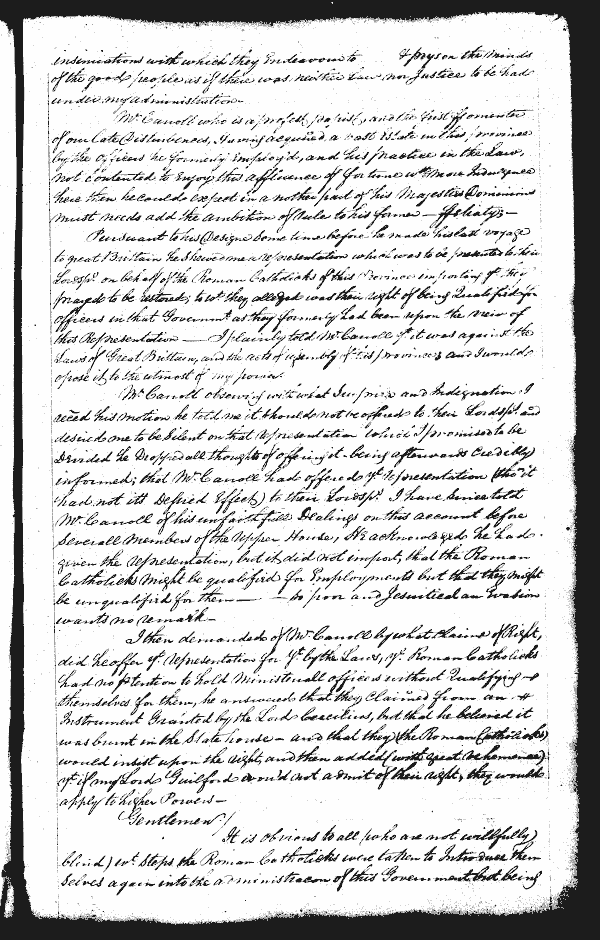 insinuations with which they Endeavour to impose on the minds
of the good people as if there was neither Law nor Justice to be had
under my administration.
Mr. Carroll who is a profest papist, and the first fomenter
of our late Disturbances, having acquired a vast Estate in this province
by the Offices he formerly Employ'd, and his practice in the Law,
not contented to Enjoy this affluence of fortune wth. more Indulgence
here then he could expect in another part of his Majesties Dominions
must needs add the ambition of Rule to his former
Pursuant to his Designe Some time before he made his last voyage
to great Brittain he Shewed me a representation which was to be presented to their
Lordsps. on behalf of the Roman Catholicks of this Province importing yt. they
prayed to be restored, to wt. they alleged was their right of being Qualified for
officers in that Governmt. as they formerly had been upon the view of
this Representation — I plainly told Mr. Carroll yt. it was against the
Laws of Great Brittain, and the acts of assembly of this province, and I would
opose it to the utmost of my power.
Mr. Carroll observing with what Surprise and Indignation I
reced his motion he told me it should not be offred to their Lordsps. and
desired me to be Silent on that representation which I promised to be
provided he Dropped all thoughts of offering it - being afterwards Credibly
informed; that Mr. Carroll had offered ye. representation (tho' it
had not its Desired Effect) to their Lordsps. I have Since told
Mr. Carroll of his unfaithfull Dealings on this account before
Severall members of the Upper House, He acknowledged he had
given the representation, but it did not import, that the Roman
Catholicks might be qualified for Employments but that they might
be unqualified for them — so poor and Jesuitical an Evasion
wants no remark —
I then demanded of Mr. Carroll by what Claime of Right,
did he offer ye. representation for yt. by the Laws, ye. Roman Catholicks
had no ptention to hold Ministeriall offices without Qualifying
themselves for them, he answered that they Claimed from an
Instrument Granted by the Lord Cecilius, but that he beleived it
was burnt in the State house — and that they (the Roman Catholicks)
would insist upon the right, and then added (with great vehemence)
yt. if my Lord Guilford would not admit of their right, they would
apply to higher Powers —
Gentlemen/
It is obvious to all (who are not willfully)
blind) wt. Steps the Roman Catholicks were taken to Introduce them
selves again into the administracon of this Government but being